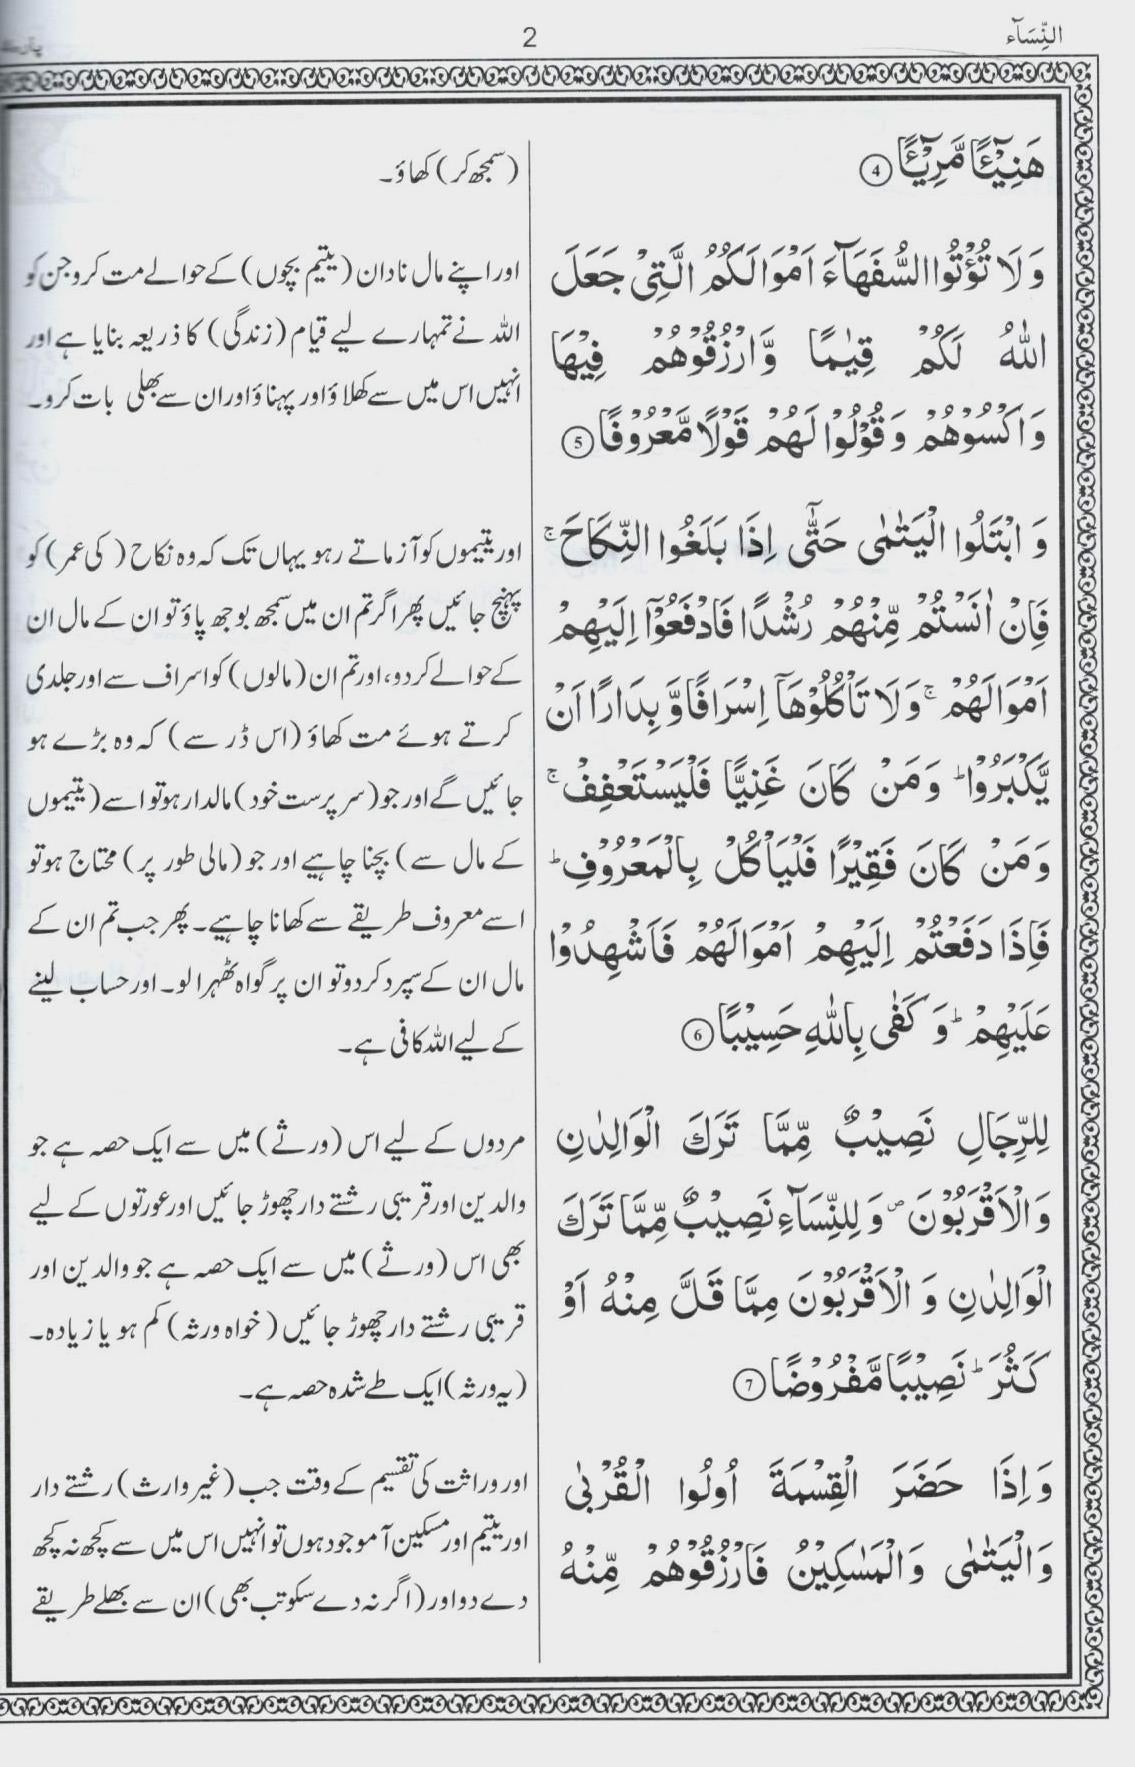 النِّسَآء
2
هَنِيْٓـًٔا مَّرِيْٓـًٔا ④
وَ لَا تُؤْتُوا السُّفَهَآءَ اَمْوَالَكُمُ الَّتِيْ جَعَلَ
اللّٰهُ لَكُمْ قِيٰمًا وَّ ارْزُقُوْهُمْ فِيْهَا
وَ اكْسُوْهُمْ وَ قُوْلُوْا لَهُمْ قَوْلًا مَّعْرُوْفًا ⑤
وَ ابْتَلُوا الْيَتٰمٰى حَتّٰٓى اِذَا بَلَغُوا النِّكَاحَ ۚ
فَاِنْ اٰنَسْتُمْ مِّنْهُمْ رُشْدًا فَادْفَعُوْٓا اِلَيْهِمْ
اَمْوَالَهُمْ ۚ وَ لَا تَاْكُلُوْهَآ اِسْرَافًا وَّ بِدَارًا اَنْ
يَّكْبَرُوْا ؕ وَ مَنْ كَانَ غَنِيًّا فَلْيَسْتَعْفِفْ ۚ
وَ مَنْ كَانَ فَقِيْرًا فَلْيَاْكُلْ بِالْمَعْرُوْفِ ؕ
فَاِذَا دَفَعْتُمْ اِلَيْهِمْ اَمْوَالَهُمْ فَاَشْهِدُوْا
عَلَيْهِمْ ؕ وَ كَفٰى بِاللّٰهِ حَسِيْبًا ⑥
لِلرِّجَالِ نَصِيْبٌ مِّمَّا تَرَكَ الْوَالِدٰنِ
وَ الْاَقْرَبُوْنَ ۪ وَ لِلنِّسَآءِ نَصِيْبٌ مِّمَّا تَرَكَ
الْوَالِدٰنِ وَ الْاَقْرَبُوْنَ مِمَّا قَلَّ مِنْهُ اَوْ
كَثُرَ ؕ نَصِيْبًا مَّفْرُوْضًا ⑦
وَ اِذَا حَضَرَ الْقِسْمَةَ اُولُوا الْقُرْبٰى
وَ الْيَتٰمٰى وَ الْمَسٰكِيْنُ فَارْزُقُوْهُمْ مِّنْهُ
(سمجھ کر) کھاؤ۔
اور اپنے مال نادان (یتیم بچوں) کے حوالے مت کرو جن کو
اللہ نے تمہارے لیے قیام (زندگی) کا ذریعہ بنایا ہے اور
انہیں اس میں سے کھلاؤ اور پہناؤ اور ان سے بھلی بات کرو۔
اور یتیموں کو آزماتے رہو یہاں تک کہ وہ نکاح (کی عمر) کو
پہنچ جائیں پھر اگر تم ان میں سمجھ بوجھ پاؤ تو ان کے مال ان
کے حوالے کر دو، اور تم ان (مالوں) کو اسراف سے اور جلدی
کرتے ہوئے مت کھاؤ (اس ڈر سے) کہ وہ بڑے ہو
جائیں گے اور جو (سرپرست خود) مالدار ہو تو اسے (یتیموں
کے مال سے) بچنا چاہیے اور جو (مالی طور پر) محتاج ہو تو
اسے معروف طریقے سے کھانا چاہیے۔ پھر جب تم ان کے
مال ان کے سپرد کر دو تو ان پر گواہ ٹھہرا لو۔ اور حساب لینے
کے لیے اللہ کافی ہے۔
مردوں کے لیے اس (ورثے) میں سے ایک حصہ ہے جو
والدین اور قریبی رشتے دار چھوڑ جائیں اور عورتوں کے لیے
بھی اس (ورثے) میں سے ایک حصہ ہے جو والدین اور
قریبی رشتے دار چھوڑ جائیں (خواہ ورثہ) کم ہو یا زیادہ۔
(یہ ورثہ) ایک طے شدہ حصہ ہے۔
اور وراثت کی تقسیم کے وقت جب (غیر وارث) رشتے دار
اور یتیم اور مسکین آ موجود ہوں تو انہیں اس میں سے کچھ نہ کچھ
دے دو اور (اگر نہ دے سکو تب بھی) ان سے بھلے طریقے